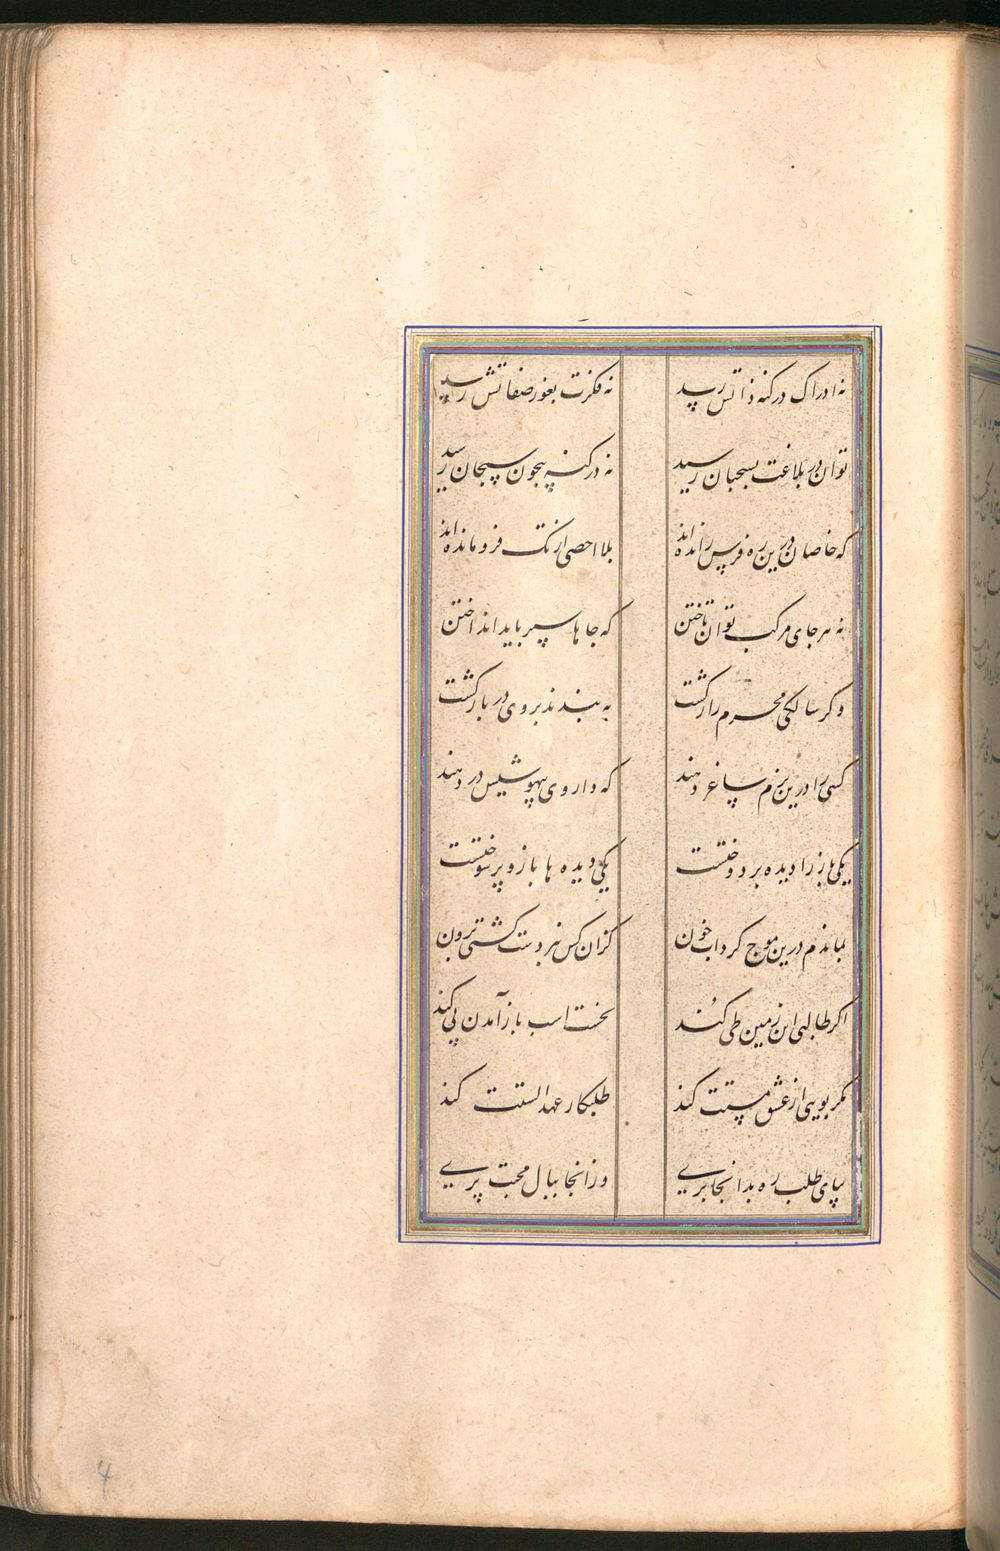 نه ادراک در کنه ذاتش رسید نه فکرت بغور صفاتش رسید
توان در بلاغت بسحبان رسید نه در کنه بیچون سبحان رسید
که خاصان درین ره فرس رانده اند بلا احصی از تک فرو مانده اند
نه هر جای مرکب توان تاختن که جاها سپر باید انداختن
وکر سالکی محرم راز کشت به بندند بر وی در بازکشت
کسی را درین بزم ساغر دهند که داروی بیهوشیش در دهند
یکی باز را دیده بر دوختست یکی دیده ها باز و پر سوختست
بماندم درین موج کرداب خون کزان کس نبردست کشتی برون
اکر طالبی این زمین طی کند نخست اسب باز آمدن پی کند
مکر بویی از عشق مستت کند طلبکار عهد الستت کند
بپای طلب ره بدانجا بری وز انجا ببال محبت پری
4